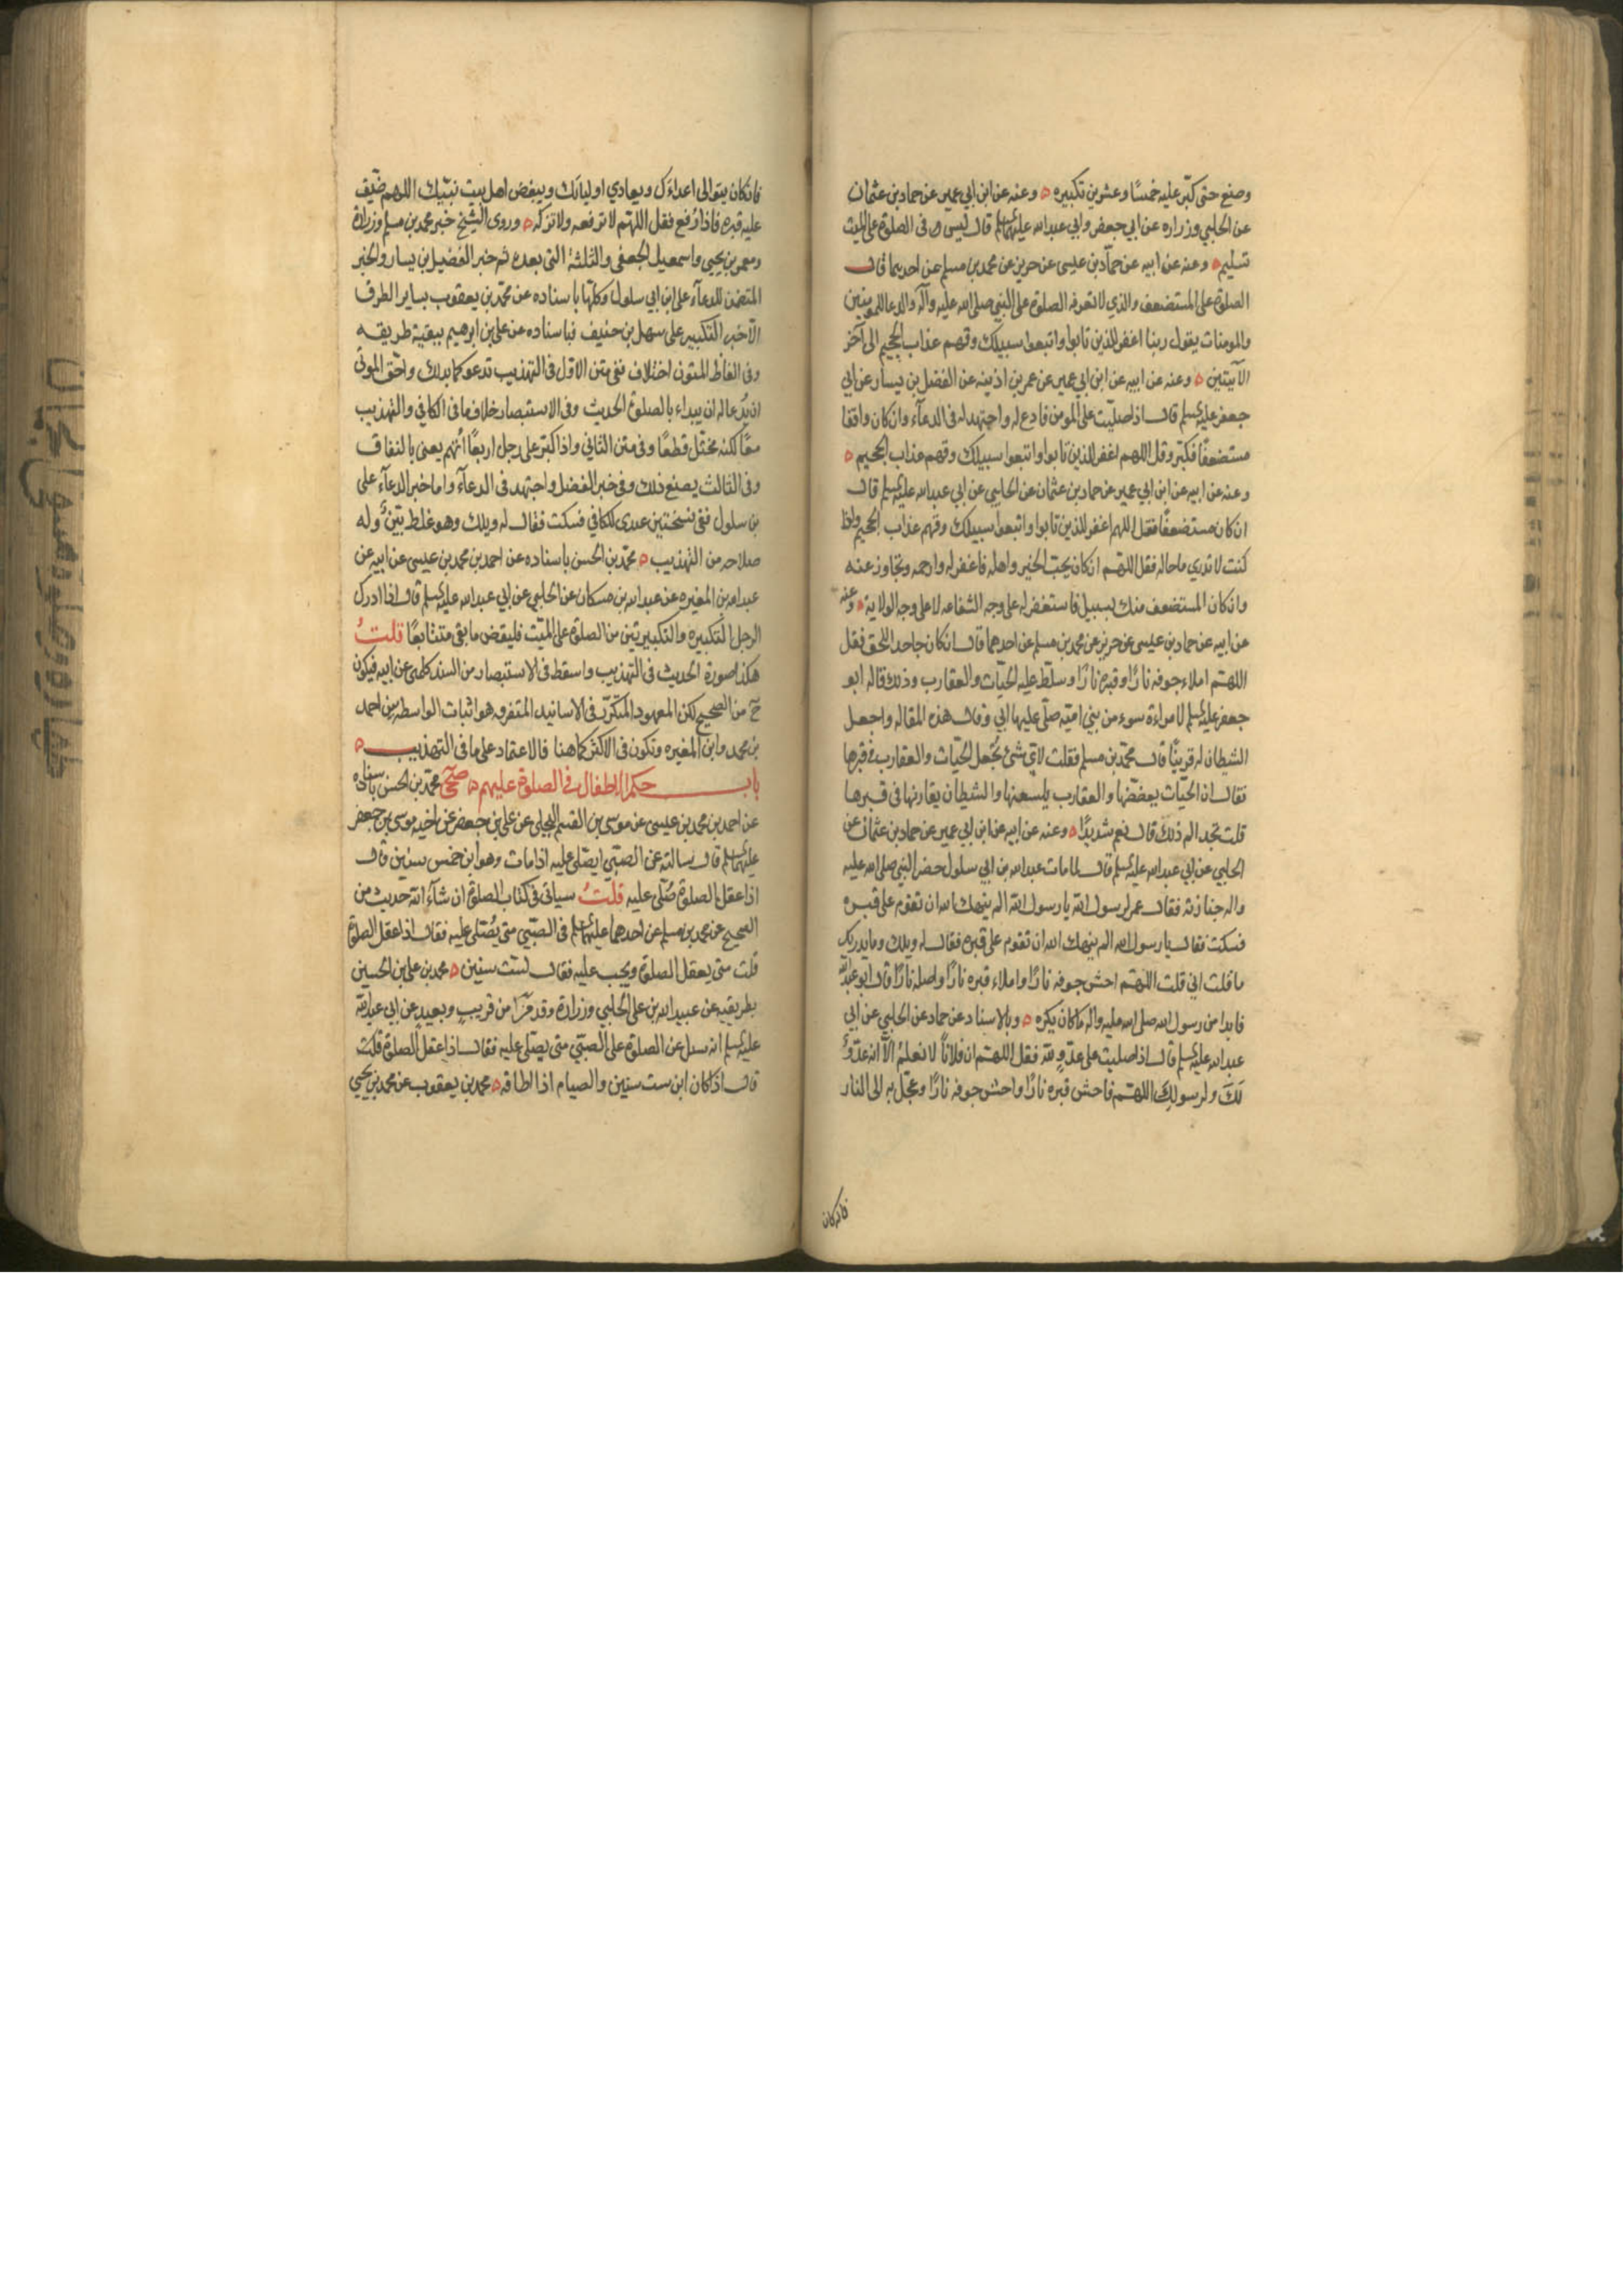 وصنع حتى كبّر عليه خمسًا وعشرين تكبيره وعنه عن ابن ابي عمير عن حماد بن عثمان
عن الحلبي وزراره عن ابي جعفر وابي عبدالله عليهما السلم قال ليس في الصلوة على الميت
تسليم وعنه عن ابيه عن حمّاد بن عيسى عن حريز عن محمد بن مسلم عن احدهما قال
الصلوة على المستضعف والذي لا تعرفه الصلوة على النبي صلى الله عليه وآله والدعا للمومنين
والمومنات يقول ربنا اغفر للذين تابوا واتبعوا سبيلك وقهم عذاب الجحيم الى آخر
الآيتين وعنه عن ابيه عن ابن ابي عمير عن عمر بن اذينه عن الفضل بن يسار عن ابي
جعفر عليه السلم قال اذا صليت على المومن فادع له واجتهد له في الدعآء وان كان واقفا
مستضعفًا فكبّر وقل اللهم اغفر للذين تابوا واتبعوا سبيلك وقهم عذاب الجحيم
وعنه عن ابيه عن ابن ابي عمير عن حماد بن عثمان عن الحلبي عن ابي عبدالله عليه السلم قال
ان كان مستضعفًا فقل اللهم اغفر للذين تابوا واتبعوا سبيلك وقهم عذاب الجحيم واذا
كنت لا تدري ما حاله فقل اللهم ان كان يحب الخير واهله فاغفر له وارحمه وتجاوز عنه
وان كان المستضعف منك بسبيل فاستغفر له على وجه الشفاعه لا على وجه الولاية وعنه
عن ابيه عن حماد بن عيسى عن حريز عن محمد بن مسلم عن احدهما قال ان كان جاحد اللحق فقل
اللهم املاء جوفه نارًا وقبره نارًا وسلّط عليه الحيّات والعقارب وذلك قاله ابو
جعفر عليه السلم لامراءة سوء من بني اميّه صلّى عليها ابي وقال هذه المقاله واجعل
الشيطان له قرينًا قال محمّد بن مسلم فقلت لايّ شئ تُجعل الحيّات والعقارب في قبرها
فقال ان الحيّات يعضضها والعقارب يلسعنها والشيطان يقارنها في قبرها
قلت تجد الم ذلك قال نعم شديدًا وعنه عن ابيه عن ابن ابي عمير عن حماد بن عثمان عن
الحلبي عن ابي عبدالله عليه السلم قال لما مات عبدالله بن ابي سلول حضر النبي صلى الله عليه
واله جنازته فقال عمر لرسول الله يا رسول الله الم ينهك الله ان تقوم على قبره
فسكت فقال يا رسول الله الم ينهك الله ان تقوم على قبره فقال له ويلك وما يدريك
ما قلت اني قلت اللهم احش جوفه نارًا واملاء قبره نارًا واصله نارًا قال ابو عبدالله
فابدا من رسول الله صلى الله عليه واله ما كان يكره وبالاسناد عن حماد عن الحلبي عن ابي
عبدالله عليه السلم قال اذا صليت على عدوّ لله فقل اللهم ان فلانًا لا نعلم الّا انه عدوّ
لَكَ ولرسولك اللهم فاحش قبره نارًا واحش جوفه نارًا وعجّل به الى النار
فانه كان
فانه كان يتوالى اعداءك ويعادي اوليائك ويبغض اهل بيت نبيّك اللهم ضيّق
عليه قبره فاذا رُفع فقل اللهم لا ترفعه ولا تزكه وروى الشيخ خبر محمد بن مسلم وزرارة
ومعمر بن يحيى واسمعيل الجعفي والثلثة التي بعده ثم خبر الفضيل بن يسار والخبر
المتضمن للدعآء على ابن ابي سلول وكلها باسناده عن محمّد بن يعقوب بساير الطرق
الّا خبر التكبير على سهل بن حنيف فباسناده عن علي بن ابرهيم ببقية طريقه
وفي الفاظ المتون اختلاف ففي متن الاوّل في التهذيب تدعو كما بدلك واحق الموتى
ان يُدعا له ان يبداء بالصلوة الحديث وفي الاستبصار خلاف ما في الكافي والتهذيب
معًا لكنه مختل قطعًا وفي متن الثاني واذا كبّر على رجل اربعًا اتُهم يعني بالنفاق
وفي الثالث يصنع ذلك وفي خبر الفضل واجتهد في الدعآء واما خبر الدعآء على
بن سلول ففي نسختين عندى للكافي فسكت فقال له ويلك وهو غلط بيّن وله
صلاحه من التهذيب محمّد بن الحسن باسناده عن احمد بن محمد بن عيسى عن ابيه عن
عبدالله بن المغيره عن عبدالله بن مسكان عن الحلبي عن ابي عبدالله عليه السلم قال اذا ادرك
الرجل التكبيره والتكبيرتين من الصلوة على الميّت فليقض ما بقي متتابعًا قلتُ
هكذا صورة الحديث في التهذيب واسقط في الاستبصار من السند كلمتى عن ابيه فيكون
ح من الصحيح لكن المعهود المتكرّر في الاسانيد المتفرقه هو اثبات الواسطه بين احمد
بن محمد وابن المغيره وتكون في الاكثر كما هنا فالاعتماد على ما في التهذيب
باب حكم الاطفال في الصلوة عليهم صحى محمّد بن الحسن باسناده
عن احمد بن محمد بن عيسى عن موسى بن القسم البجلي عن علي بن جعفر عن اخيه موسى بن جعفر
عليهما السلم قال سالته عن الصبّي ايصلّى عليه اذا مات وهو ابن خمس سنين قال
اذا عقل الصلوة صُلّي عليه قلتُ سياتي في كتاب الصلوة ان شآء الله حديث من
الصحيح عن محمد بن مسلم عن احدهما عليهما السلم في الصبّي متى يُصلى عليه فقال اذا عقل الصلوة
قلت متى يعقل الصلوة ويجب عليه فقال لستّ سنين محمد بن علي بن الحسين
بطريقيه عن عبيدالله بن علي الحلبي وزرارة وقد مرّا من قريب وبعيد عن ابي عبدالله
عليه السلم انه سئل عن الصلوة على الصبّي متى يصلّى عليه فقال اذا عقل الصلوة قلت
قال اذا كان ابن ست سنين والصيام اذا اطاقه محمد بن يعقوب عن محمد بن يحيى